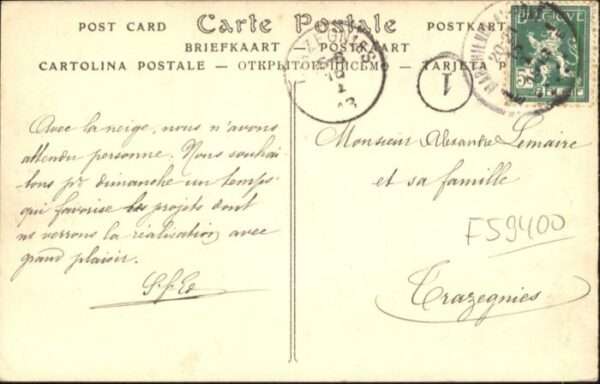 POST CARD Carte Postale POSTKART
BRIEFKAART — POSTKAART
CARTOLINA POSTALE – ОТКРЫТОЕ ПИСЬМО – TARJETA P
BELGIQUE
1
Avec la neige, nous n'avons
attendu personne. Nous souhai-
tons pr dimanche un temps
qui favorise les projets dont
ns verrons la réalisation avec
grand plaisir.
Monsieur Alexandre Lemaire
et sa famille
F59400
Trazegnies